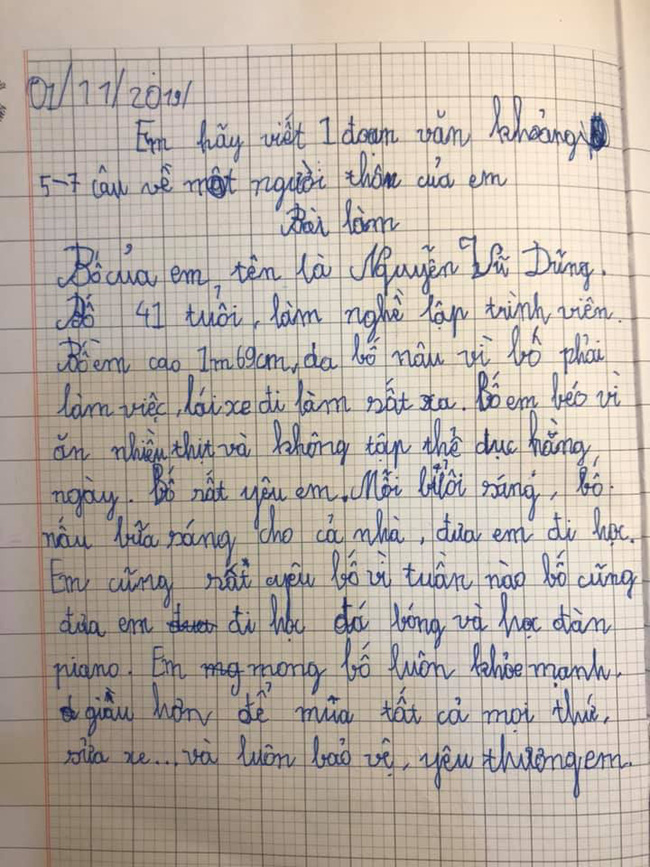 01/11/2019/
Em hãy viết 1 đoạn văn khoảng
5-7 câu về một người thân của em
Bài làm
Bố của em, tên là Nguyễn Vũ Dũng.
Bố 41 tuổi, làm nghề lập trình viên.
Bố em cao 1m69cm, da bố nâu vì bố phải
làm việc, lái xe đi làm rất xa. Bố em béo vì
ăn nhiều thịt và không tập thể dục hằng
ngày. Bố rất yêu em. Mỗi buổi sáng, bố
nấu bữa sáng cho cả nhà, đưa em đi học.
Em cũng rất yêu bố vì tuần nào bố cũng
đưa em đi học đá bóng và học đàn
piano. Em mong bố luôn khỏe mạnh.
giầu hơn để mũa tất cả mọi thứ,
sửa xe... và luôn bảo vệ, yêu thương em.